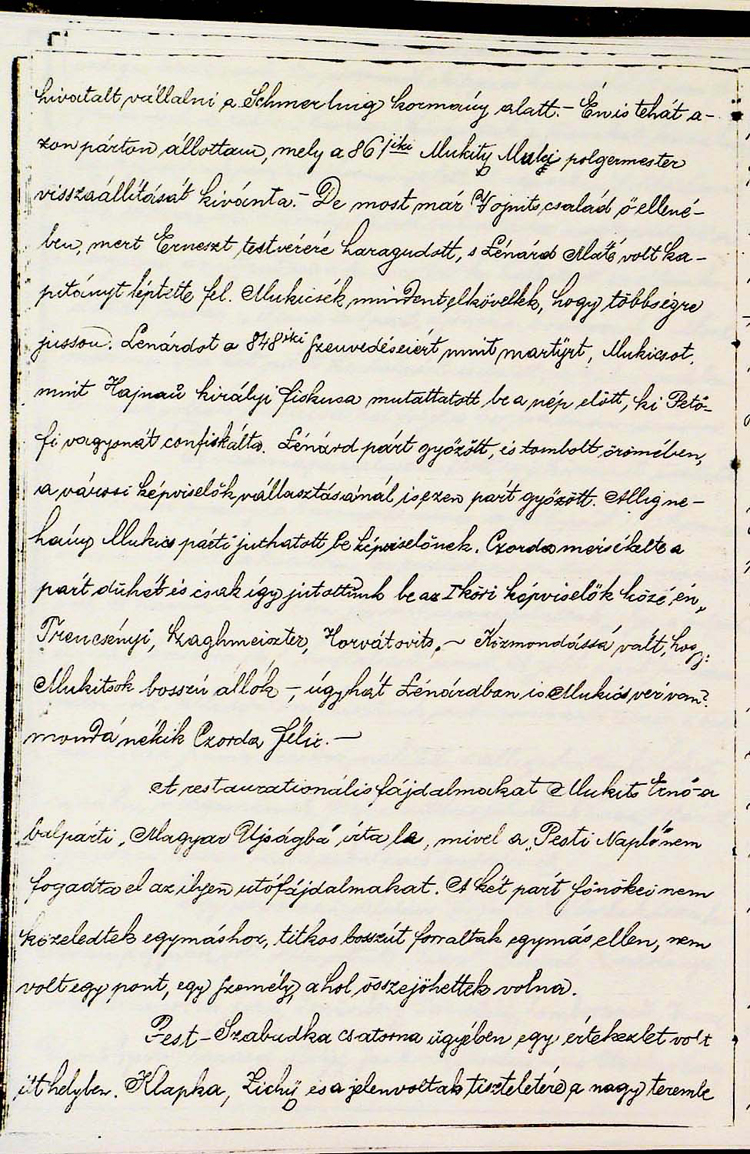 hivatalt vállalni a Schmerling kormány alatt.- Én is tehát a-
zon párton állottam, mely a 861iki Mukity Muki polgermester
visszaállitását kivánta.- De most már Vojnits család ő ellené-
ben, mert Erneszt testvérére haragudott, s Lénárd Máté volt ka-
pitányt léptette fel. Mukicsék mindent elkövettek, hogy többségre
jusson. Lenárdot a 848iki szenvedéseiért mint martÿrt, Mukicsot,
mint Hajnaű királyi fiskusa mutattatott be a nép előtt, ki Petö-
fi vagyonát confiskálta. Lénárd párt győzött, és tombolt örömében,
a városi képviselők vállasztásánál is ezen párt győzött. Allig ne-
hány Mukics párti juthatott be képviselőnek. Czorda mersékelte a
párt dühét és csak így jutottunk be az I köri képviselők közé én,
Trencsényi, Szaghmeiszter, Horvátovits. - Közmondássá vált, hogy:
Mukitsok bosszú állók -, úgy hát Lénárdban is Mukics vér van?
mondá nékik Czorda félix. -
A restaurationális fájdalmakat Mukits Ernő - a
balpárti "Magyar Ujságba" írta le, mivel a "Pesti Napló" nem
fogadta el az ilyen utófájdalmakat. A két párt főnökei nem
közeledtek egymáshoz, titkos boszút forraltak egymás ellen, nem
volt egy pont, egy személy, ahol összejöhettek volna.
Pest-Szabudka csatorna ügyében egy értekezlet volt
itt helyben. Klapka, Zichÿ és a jelenvoltak tiszteletére a nagy terembe